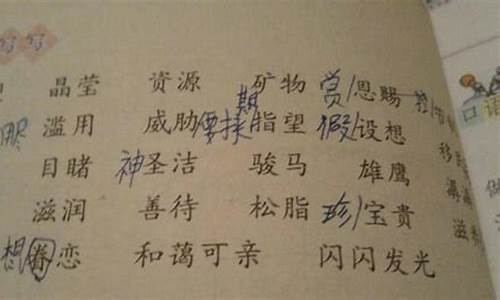 写写
晶莹 资源 矿物 赏/恩赐
滥用 威胁 期 脂望 假/设想
目睹 神圣洁 骏马 雄鹰
滋润 善待 松脂 珍/宝贵
想眷恋 和蔼可亲 闪闪发光
口语